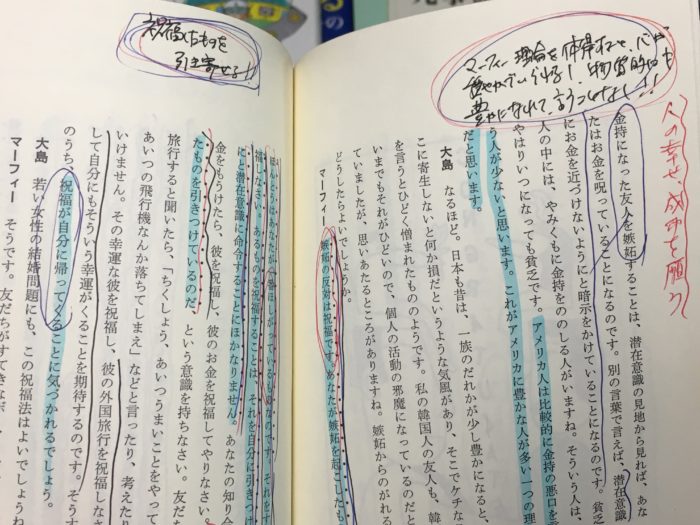 マーフィー理論を体得すると、心も
豊かでいられるし、物質的にも
豊かになれて、言うことなし!!
人の幸せ、成功を願う
金持になった友人を嫉妬することは、潜在意識の見地から見れば、あな
たはお金を呪っていることになるのです。別の言葉で言えば、潜在意識
にお金を近づけないようにと暗示をかけていることになるのです。貧乏
人の中には、やみくもに金持をののしる人がいますね。そういう人は、
やはりいつになっても貧乏です。アメリカ人は比較的に金持の悪口を言
う人が少ないと思います。これがアメリカに豊かな人が多い一つの理
だと思います。
大島 なるほど。日本も昔は、一族のだれかが少し豊かになると、
こに寄生しないと何か損だというような気風があり、そこでケチな
を言うとひどく憎まれたもののようです。私の韓国人の友人も、韓
いまでもそれがひどいので、個人の活動の邪魔になっているのだと
ていましたが、思いあたるところがありますね。嫉妬からのがれる
どうしたらよいでしょうか。
マーフィー 嫉妬の反対は祝福です。あなたが嫉妬を起こしたも
祝福したものを
引き寄せる!!
ほんとうはあなたが一番ほしがっているものなのです。それを
福しなさい。あるものを祝福することは、それを自分に引きつけ
にと潜在意識に命令することにほかなりません。あなたの知り合
金をもうけたら、彼を祝福し、彼のお金を祝福してやりなさい。
たものを引きつけているのだ、という意識を持ちなさい。友だち
旅行すると聞いたら、「ちくしょう、あいつうまいことをやって
あいつの飛行機なんか落ちてしまえ」などと言ったり、考えたり
いけません。その幸運な彼を祝福し、彼の外国旅行を祝福しなさ
して自分にもそういう幸運がくることを期待するのです。そうす
のうち、祝福が自分に帰ってくることに気づかれるでしょう。
大島 若い女性の結婚問題にも、この祝福法はよいでしょうね
マーフィー そうです。友だちがすてきなボ